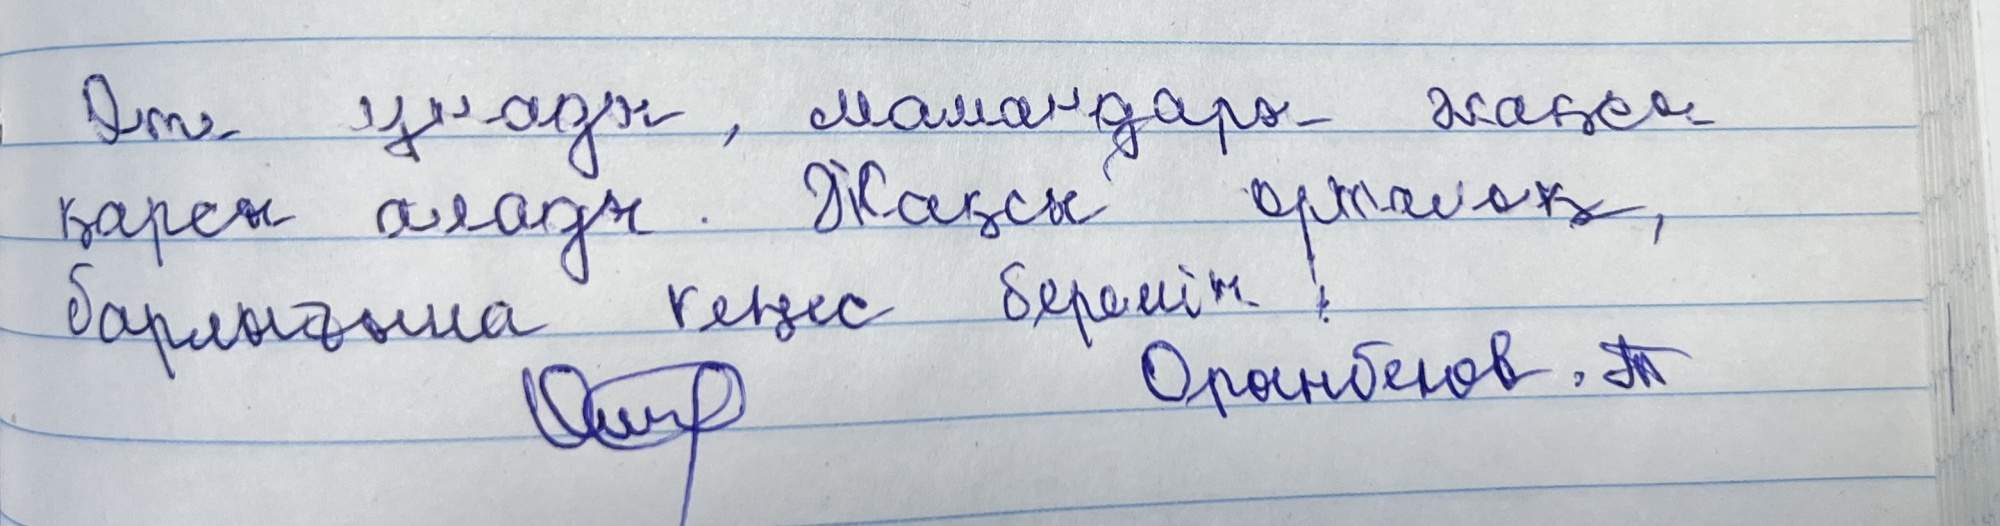 Өте ұнады, мамандары жақсы
қарсы алады. Жақсы орталық,
барлығына кеңес беремін!
Оранбеков. Т